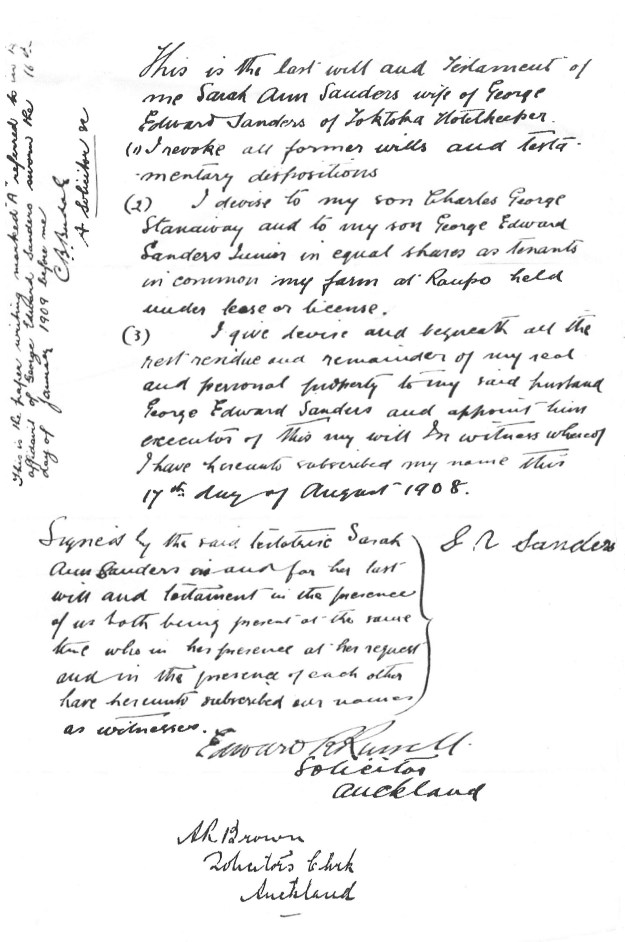 This is the last will and Testament of
me Sarah Ann Sanders wife of George
Edward Sanders of Tokatoka Hotelkeeper.
(1) I revoke all former wills and testa-
mentary dispositions
(2) I devise to my son Charles George
Stanaway and to my son George Edward
Sanders Junior in equal shares as tenants
in common my farm at Raupo held
under lease or license.
(3) I give devise and bequeath all the
rest residue and remainder of my real
and personal property to my said husband
George Edward Sanders and appoint him
executor of this my will In witness whereof
I have hereunto subscribed my name this
17th day of August 1908.
Signed by the said testatrix Sarah
Ann Sanders as and for her last
will and testament in the presence
of us both being present at the same
time who in her presence at her request
and in the presence of each other
have hereunto subscribed our names
as witnesses.
S A Sanders
Edward R Russell.
Solicitor
Auckland
AR Brown
Solicitors Clerk
Auckland
This is the paper writing marked "A" referred to in
affidavit of George Edward Sanders sworn the 16th
day of January 1909 before me
A Solicitor